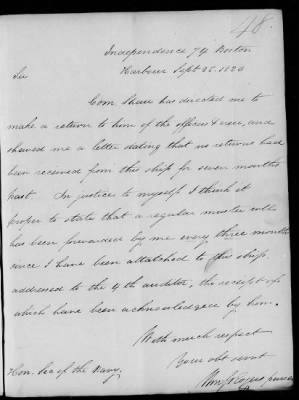 48.
Independence 74 Boston
Harbour Sept 25. 1820
Sir
Com Shaw has directed me to
make a return to him of the officers & crew, and
shewed me a letter stating that no returns had
been received from this ship for seven months
past. In justice to myself I think it
proper to state that a regular muster
has been forwarded by me every three months
since I have been attatched to this ship
addressed to the 4th auditor, the receipt of
which have been acknowledged by him.
With much respect
Your obt servt
Hon. Sec of the Navy.